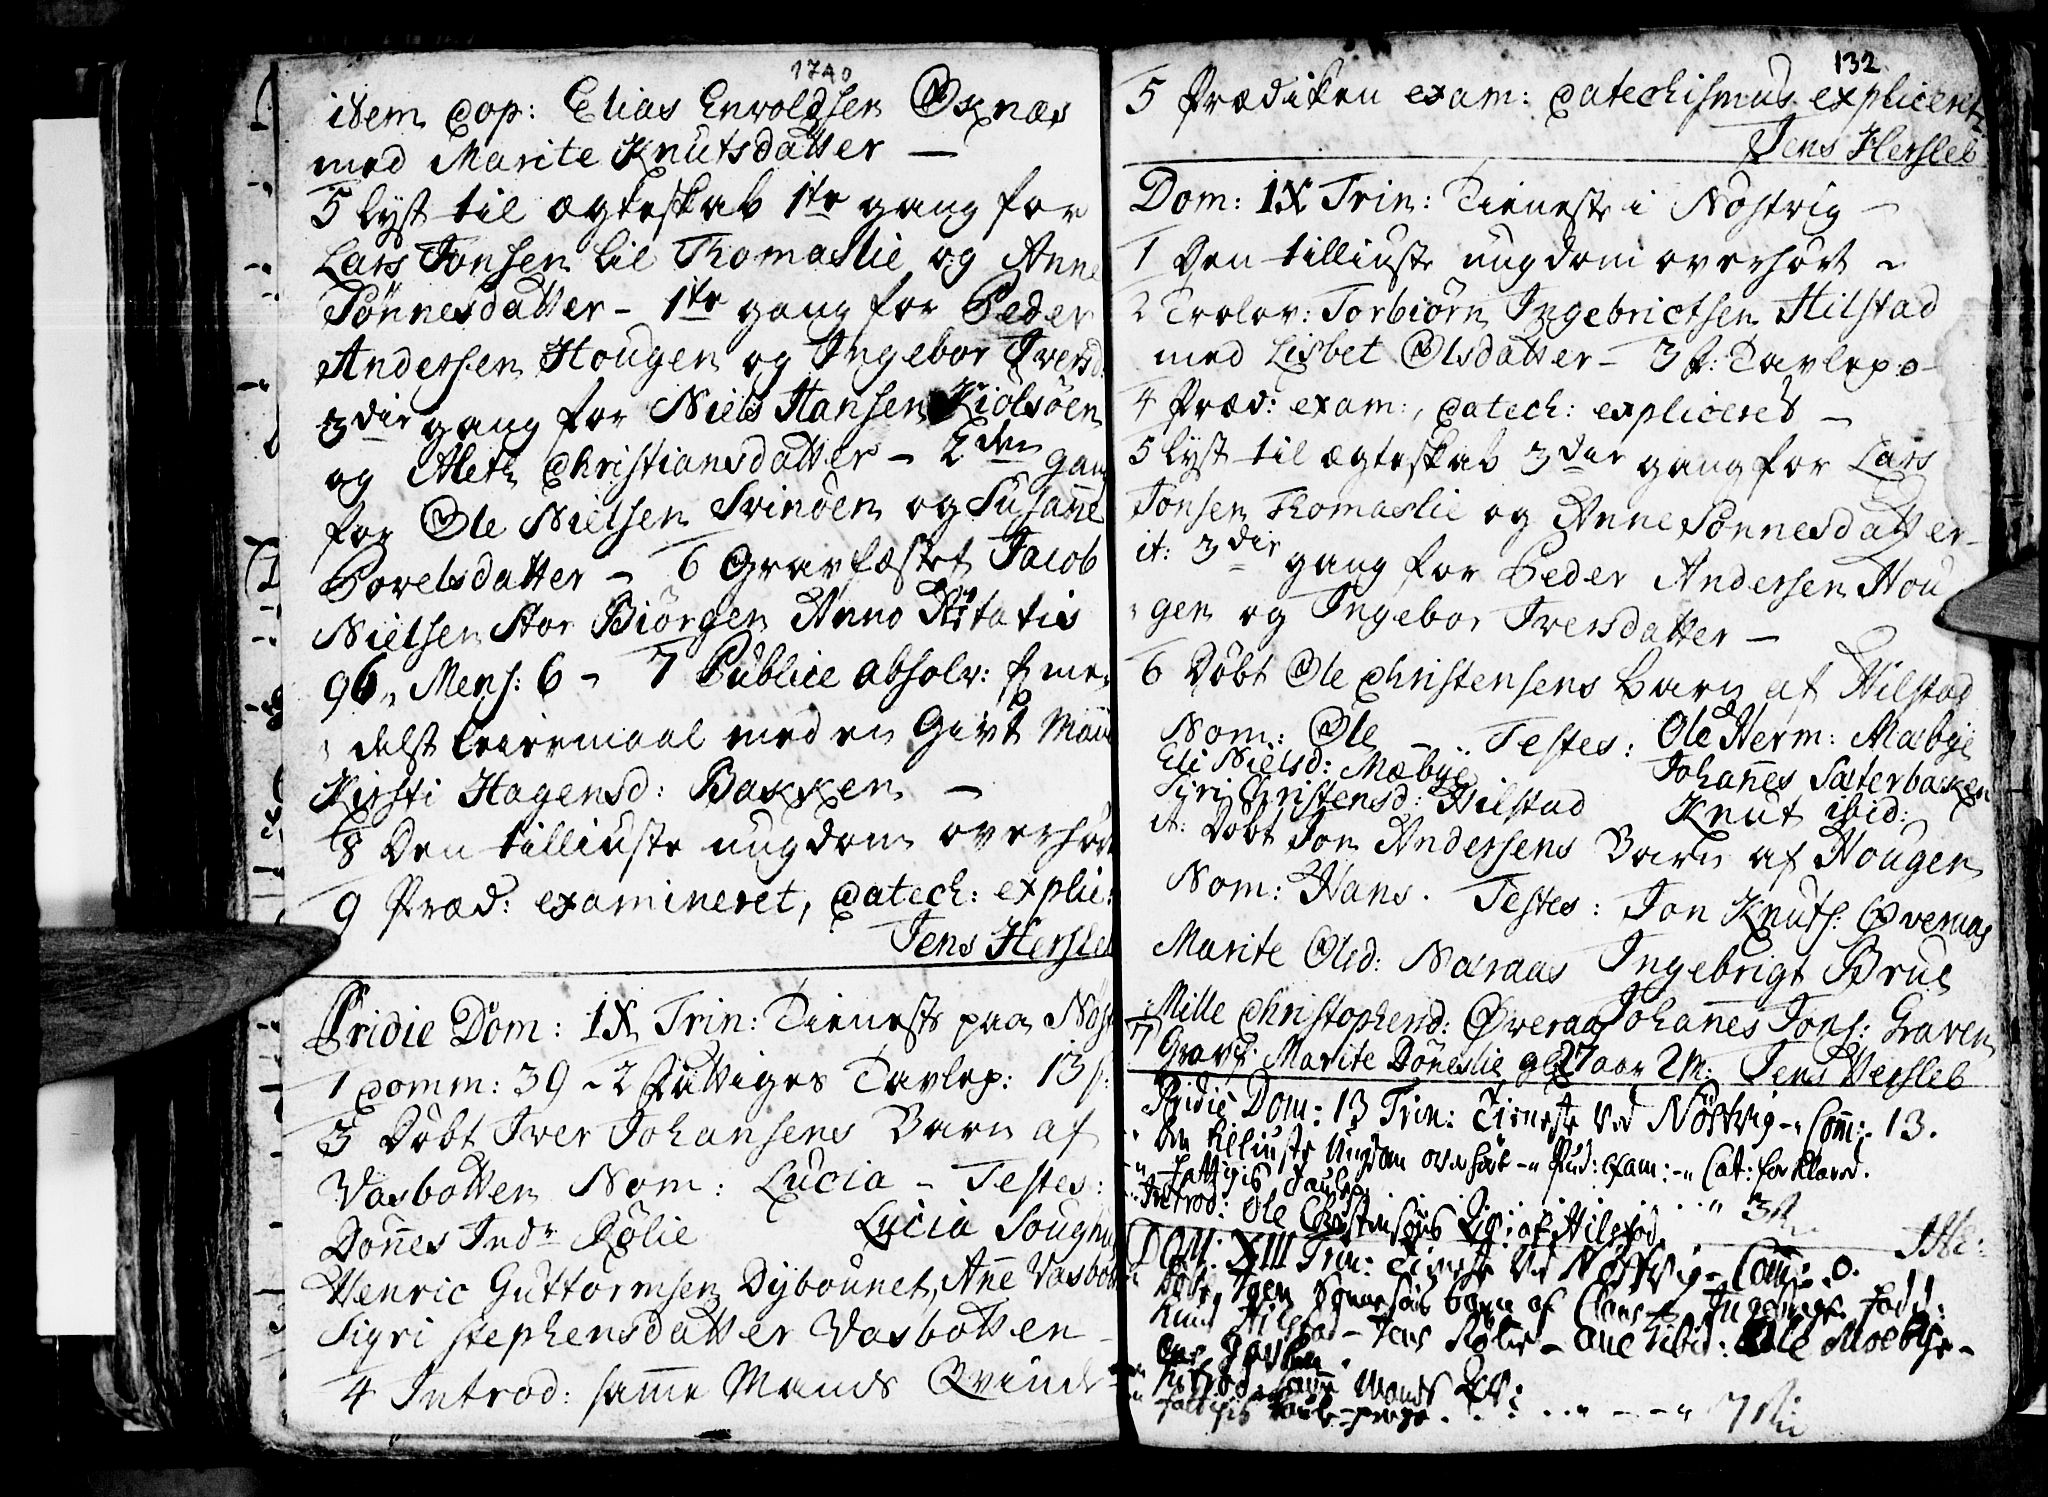 1740
item Cop: Elias Envoldsen Øxnæs
med Marite Knutsdatter —
5 lyst til ægteskab 1te gang for
Lars Jonsen lil Thomaslie og Anne
Tönnesdatter – 1te gang for Peder
Andersen Hougen og Ingebor Iversd:
3die gang for Niels Hansen Kiölsöen
og Aleth Christiansdatter – 2den gang
for Ole Nielsen Trinöen og Susanne
Povelsdatter – 6 Gravfæstet Jacob
Nielsen Stor Biörgen Anno Ætatis
96, Mens: 6 – 7 Publice absolv: for me-
delst leiermaal med en Givt Mand
Kirsti Hagensd: Baxxen —
8 Den tilliuste ungdom overhört
9 Præd: examineret, Catech: explic:
Jens Hersleb
Pridie Dom: IX Trin: Tieneste paa Nöst
1 Comm: 39 – 2 Fattiges Tavlep: 13 s:
3 Döbt Iver Johansens Barn af
Vasbotten Nom: Lucia – Testes:
Dönnes Indr Rölie Lucia Soug
Henric Guttormsen Dybounet, Anne Vasbott
Sigri Stephensdatter Vasbotten –
4 Introd: samme Mands Qvinde –
132
5 Prædiken exam: Catechismus expliceret
Jens Hersleb
Dom: IX Trin: Tieneste i Nöstvig –
1 Den tilliuste ungdom overhört –
2 Trolov: Torbiörn Ingebrictsen Hilstad
med Lisbet Olsdatter – 3 f: Tavlep: 0
4 Præd: exam:, Catech: expliceret —
5 lyst til ægteskab 3die gang for Lars
Jonsen Thomaslie og Anne Tönnesdatter –
it: 3die gang for Peder Andersen Hou
gen og Ingebor Iversdatter —
6 Döbt Ole Christensens Barn af Hilstad
Nom: Ole – Testes: Ole Herm: Mæbye
Eli Nielsd: Mæbye Johannes Sæterbaxxen
Siri Christensd: Hilstad Knut ibid:
it: Döbt Jon Andersens Barn af Hougen
Nom: Hans. Testes: Jon Knuts: Overaas
Marite Olsd: Næraas Ingebrigt Brul
Mille Christophersd: Øveraas Johannes Jons: Graven
7 Gravf: Marite Döneslie gl: 27 aar 2 M: Jens Hersleb
Pridie Dom: 13 Trin: Tieneste ved Nöstvig – Comm: 13.
Den tilliuste Ungdom overhört – Præd: Exam: – Cat: forklared.
Fattigis Taulep: . . . . . . 3
Introd: Ole Christensöns Qv: af Hilstad.
Dom: XIII Trin: Tieneste ved Nöstvig – Com: 0.
barn af
Knud Hilstad – Jens Rölie – Ane ibid: Ole Moebye –
Introd: samme Mands Qv:
Fattigis Taule-penge . . . . 7